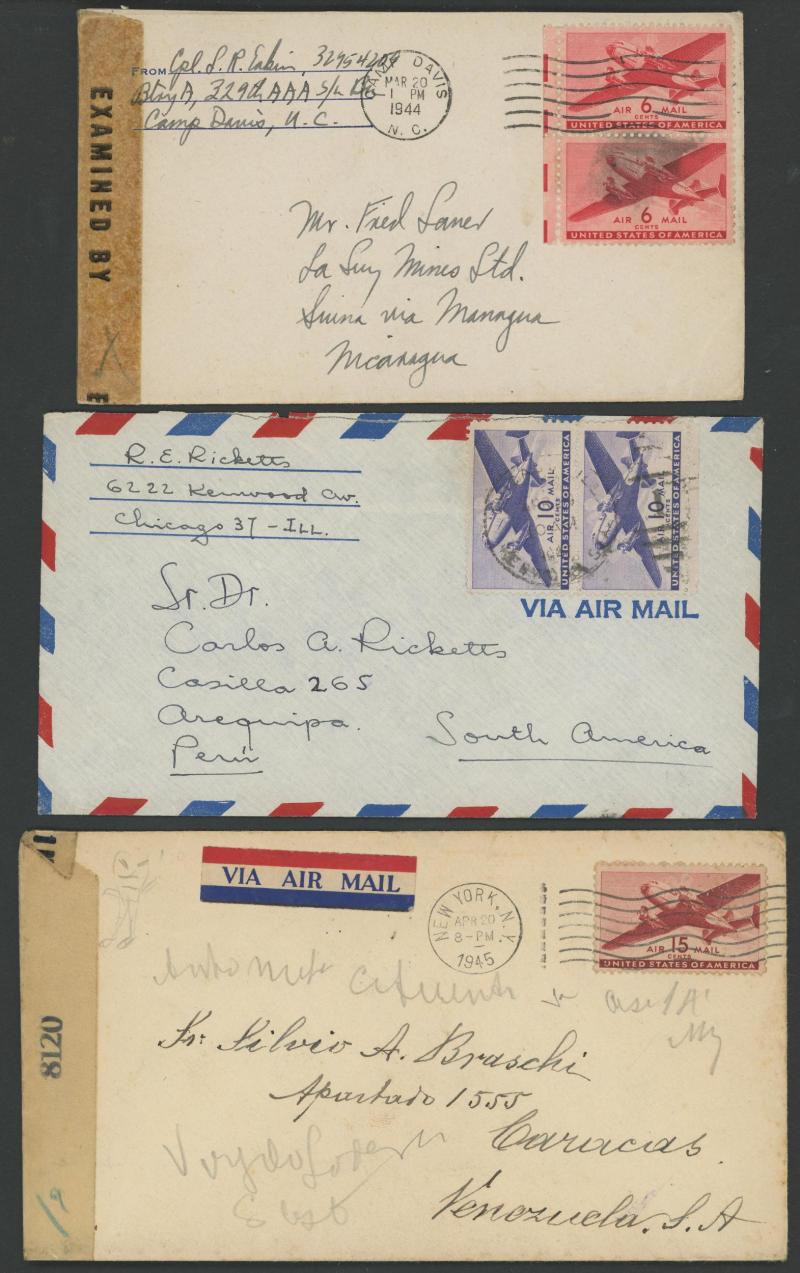 EXAMINED BY
FROM Cpl. S. R. Eakin, 32954204
Btry A, 329th AAA S/L Bn
Camp Davis, N.C.
CAMP DAVIS
MAR 20
1 PM
1944
N. C.
AIR 6 MAIL
CENTS
UNITED STATES OF AMERICA
AIR 6 MAIL
CENTS
UNITED STATES OF AMERICA
Mr. Fred Saner
La Luz Mines Ltd.
Siuna via Managua
Nicaragua
R. E. Ricketts
6222 Kenwood Av.
Chicago 37 - ILL.
AIR 10 MAIL
CENTS
UNITED STATES OF AMERICA
AIR 10 MAIL
CENTS
UNITED STATES OF AMERICA
VIA AIR MAIL
Sr. Dr.
Carlos A. Ricketts
Casilla 265
Arequipa.
Perú
South America
8120
VIA AIR MAIL
NEW YORK, N.Y.
APR 20
8-PM
1945
AIR 15 MAIL
CENTS
UNITED STATES OF AMERICA
Sr. Silvio A. Braschi
Apartado 1555
Caracas.
Venezuela. S.A